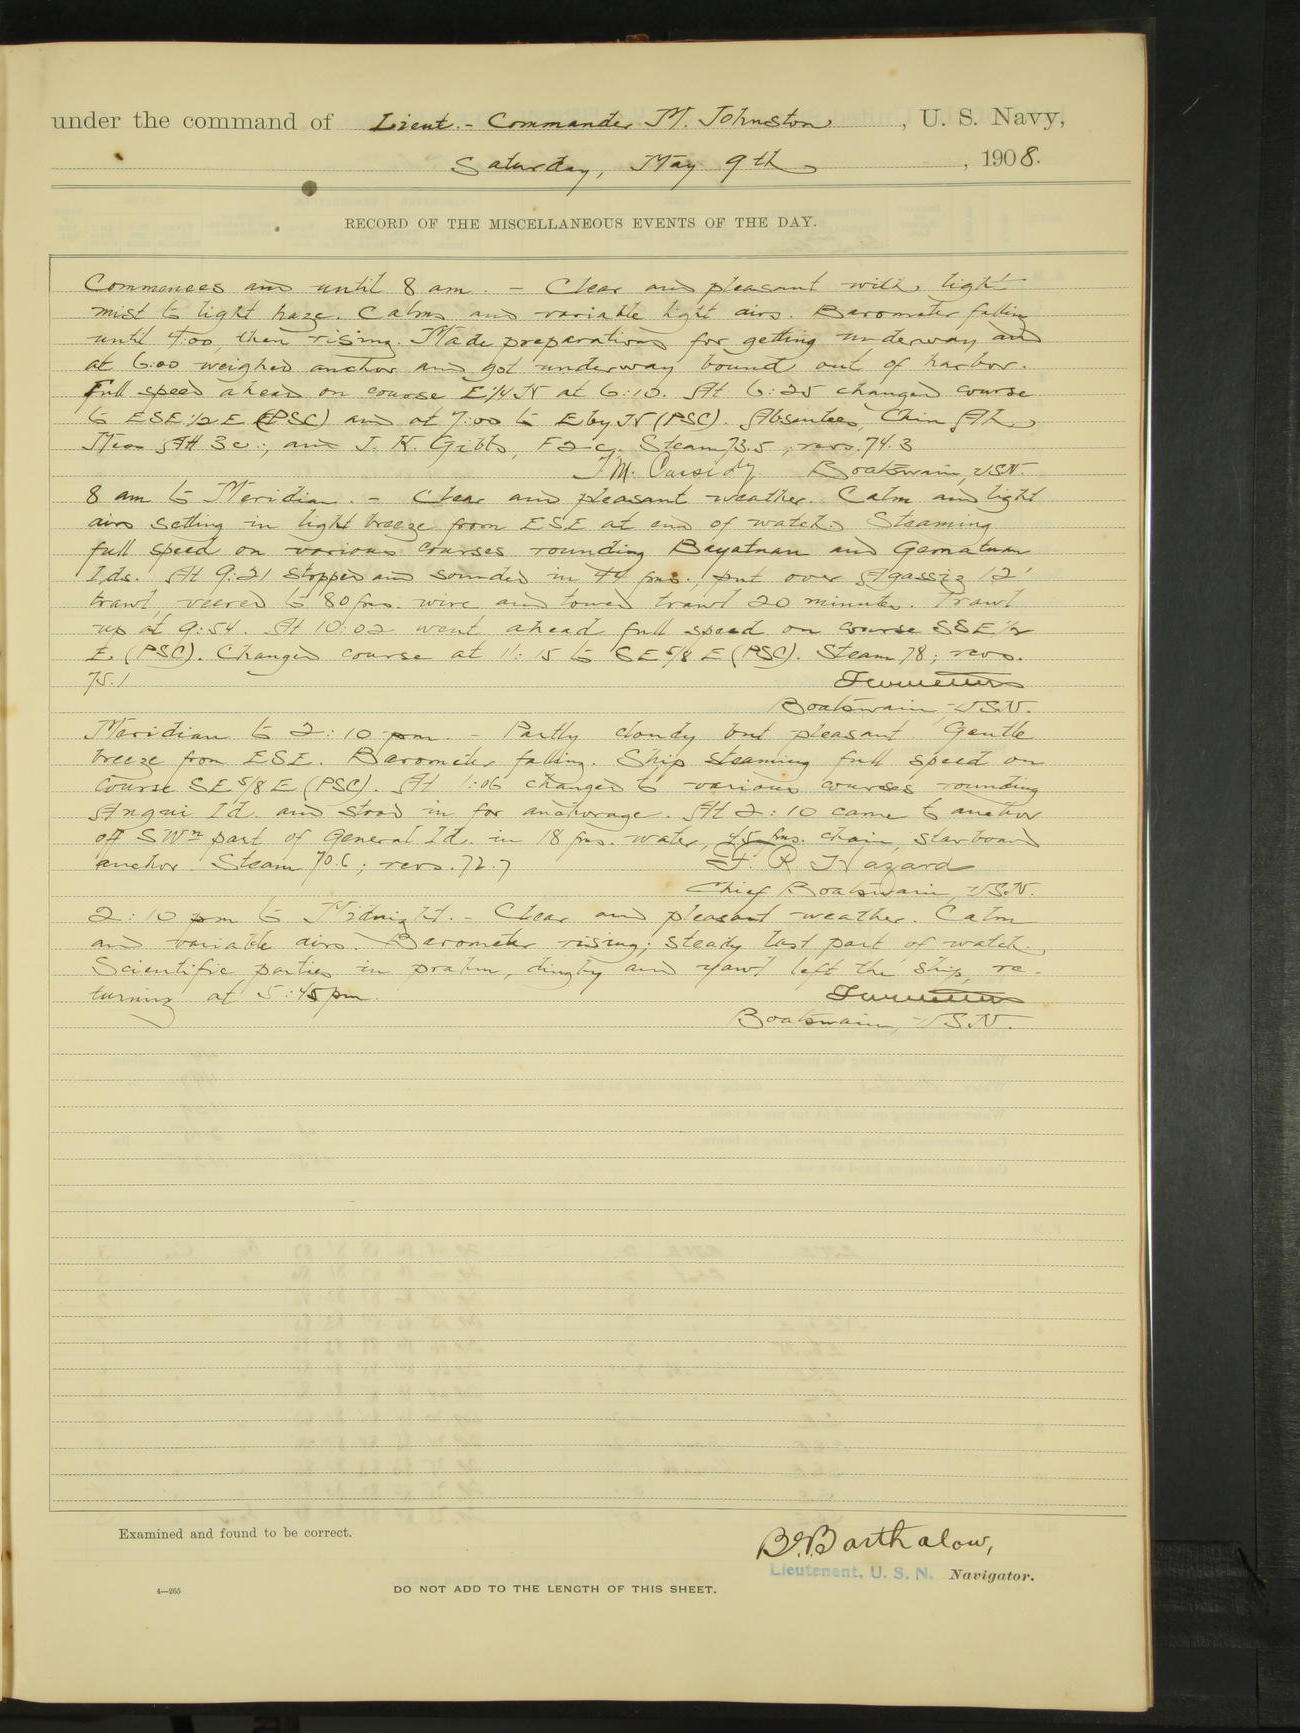 under the command of Lieut.- Commander M. Johnston, U. S. Navy,
Saturday, May 9th, 1908.
RECORD OF THE MISCELLANEOUS EVENTS OF THE DAY.
Commences and until 8 am. - Clear and pleasant with light
mist to light haze. Calms and variable light airs. Barometer falling
until 4:00, then rising. Made preparations for getting underway and
at 6:00 weighed anchor and got underway bound out of harbor.
Full speed ahead on course E1/4N at 6:10. At 6:25 changed course
to ESE1/2E (PSC) and at 7:00 to E by N (PSC). Absentees, Chin Ah
Att 3c; and J. K. Gibbs, F2c. Steam 73.5; revs. 74.3
J.M. Cassidy Boatswain, USN.
8 am to Meridian. - Clear and pleasant weather. Calm and light
airs setting in light breeze from ESE at end of watch. Steaming
full speed on various courses rounding Bayatnan and Gematuan
Ids. At 9:21 stopped and sounded in 44 fms.; put over Agassiz 12'
trawl, veered to 80 fms. wire and towed trawl 20 minutes. Trawl
up at 9:54. At 10:02 went ahead full speed on course SSE1/2
E. (PSC). Changed course at 11:15 to SE5/8E (PSC). Steam 78; revs.
75.1
Boatswain, USN.
Meridian to 2:10 pm. - Partly cloudy but pleasant. Gentle
breeze from ESE. Barometer falling. Ship steaming full speed on
course SE5/8E (PSC). At 1:06 changed to various courses rounding
Anqui Id. and stood in for anchorage. At 2:10 came to anchor
off SWn part of General Id. in 18 fms. water, 45 fms. chain, starboard
anchor. Steam 70.6; revs. 72.7 F. R. Hazard
Chief Boatswain, USN.
2:10 pm to Midnight. - Clear and pleasant weather. Calm
and variable airs. Barometer rising; steady last part of watch.
Scientific parties in prahm, dinghy and yawl left the ship, re-
turning at 5:45 pm.
Boatswain, USN.
Examined and found to be correct.
Barthalow,
Lieutenant, U. S. N. Navigator.
4—265
DO NOT ADD TO THE LENGTH OF THIS SHEET.